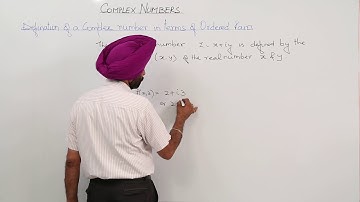 COMPLEX NUMBERS
Definition of a Complex number in terms of Ordered Pairs
The number Z = x+iy is defined by the
(x, y) of the real number x & y
, 3) = 2 + i3
or 2